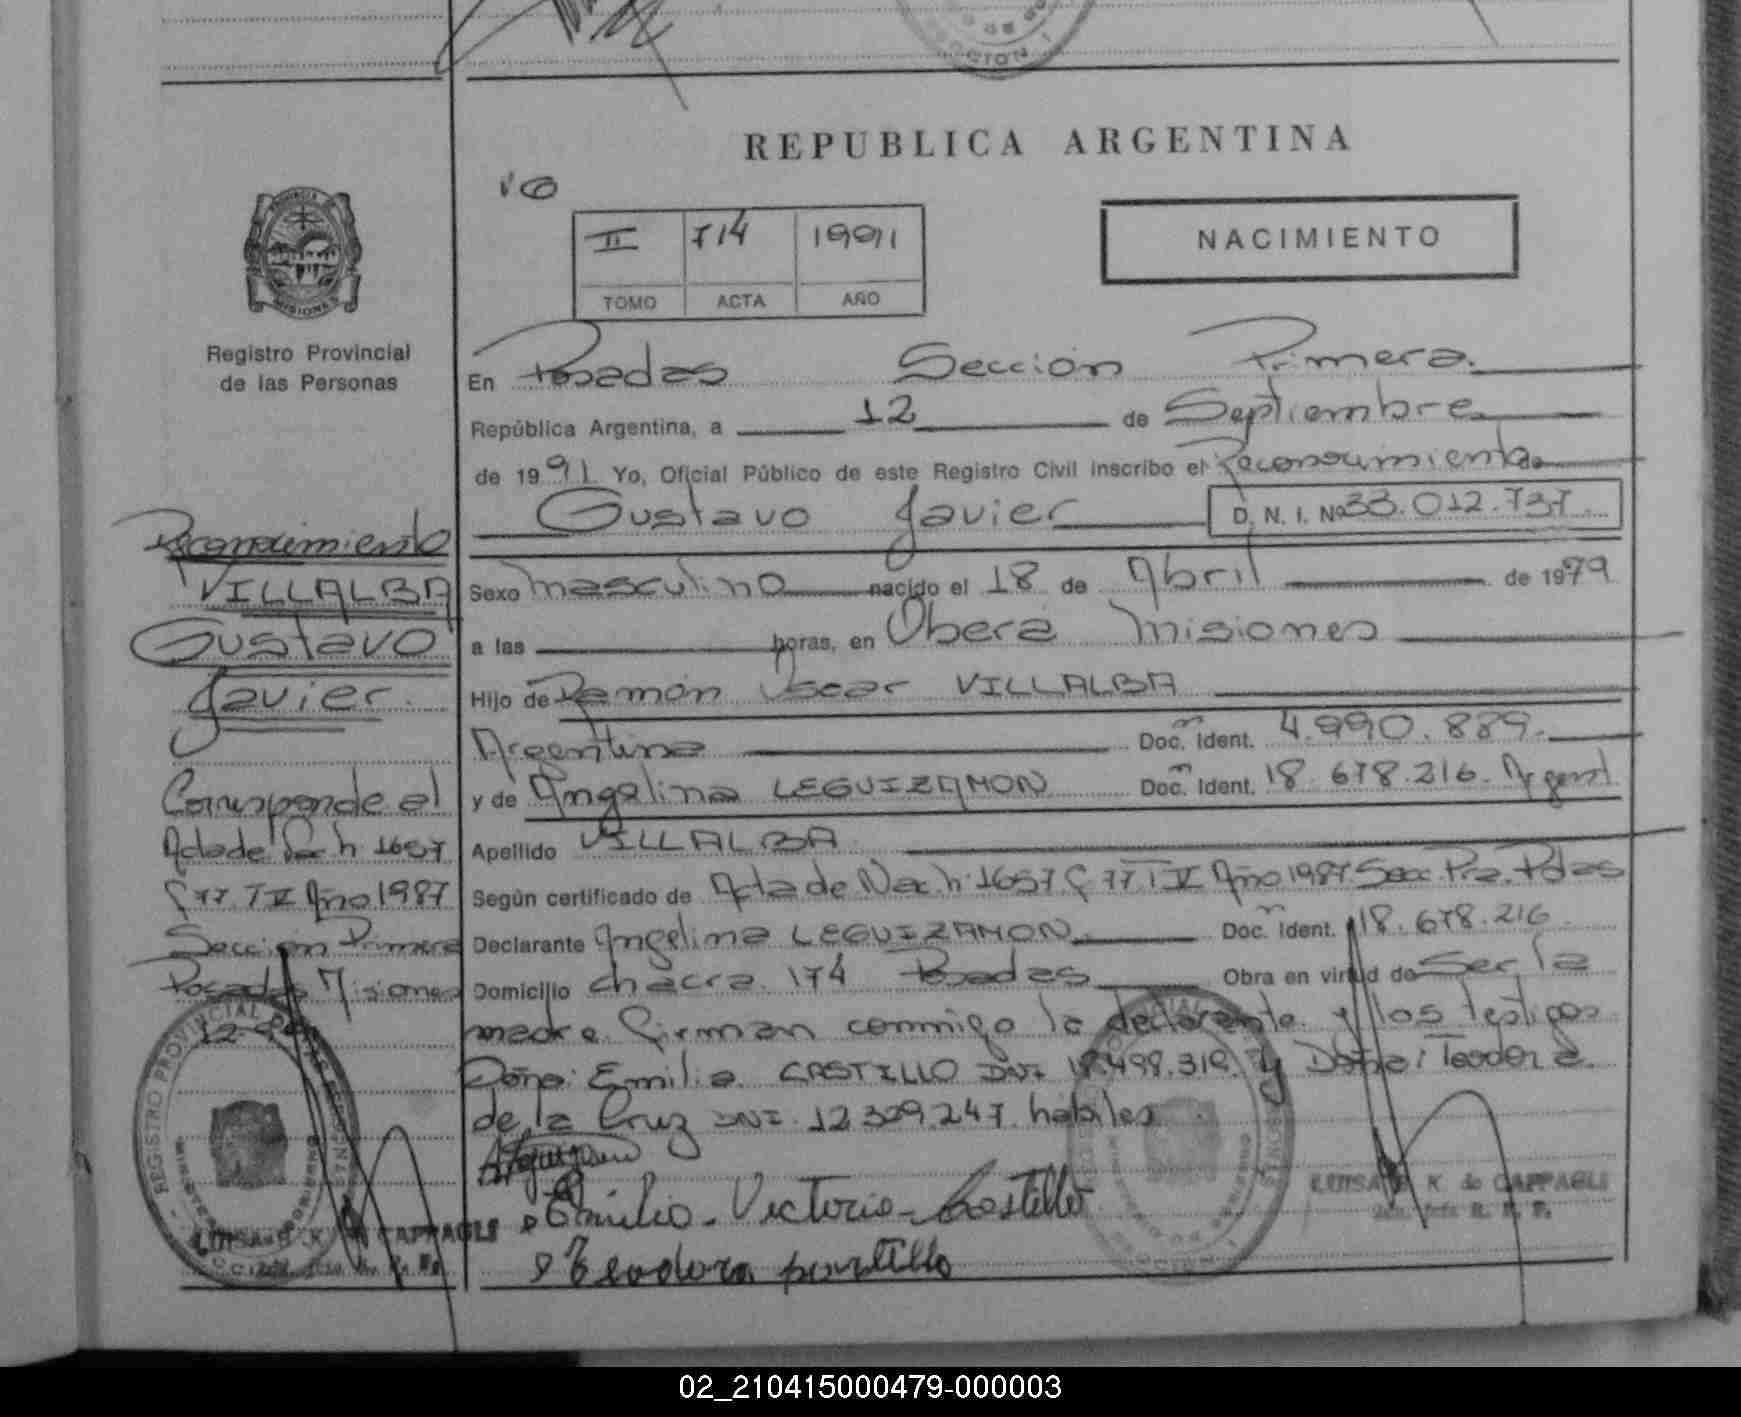 REPUBLICA ARGENTINA
II 714 1991
TOMO ACTA AÑO
NACIMIENTO
PROVINCIA DE MISIONES
Registro Provincial
de las Personas
En Posadas Sección Primera.
República Argentina, a 12 de Septiembre
de 1991 Yo, Oficial Público de este Registro Civil inscribo el Reconocimiento
Gustavo Javier D. N. I. Nº 33.012.737
Sexo masculino nacido el 18 de Abril de 1979
a las horas, en Obera Misiones
Hijo de Ramón Oscar VILLALBA
Argentina Doc. Ident. 4.990.889.
y de Angelina LEGUIZAMON Doc. Ident. 18.678.216. Argent
Apellido VILLALBA
Según certificado de Acta de Nac. h. 1657 F 77 T IV Año 1987 Secc. Pra. Pdas
Declarante Angelina LEGUIZAMON Doc. Ident. 18.678.216
Domicilio chacra 174 Posadas Obra en virtud de Ser la
madre. firman conmigo la declarante y los testigos
Doña: Emilia CASTILLO DNI 18.498.319. y Doña: Teodora
de la Cruz DNI. 12.329.247. habiles
Emilia Victoria Castillo
Teodora portillo
LUISA B K de CAPPAGLI
Reconocimiento
VILLALBA
Gustavo
Javier.
Corresponde al
Acta de Nac h 1657
F 77 T IV Año 1987
Sección Primera
Posadas Misiones
REGISTRO PROVINCIAL DE LAS PERSONAS
LUISA B K CAPPAGLI
02_210415000479-000003